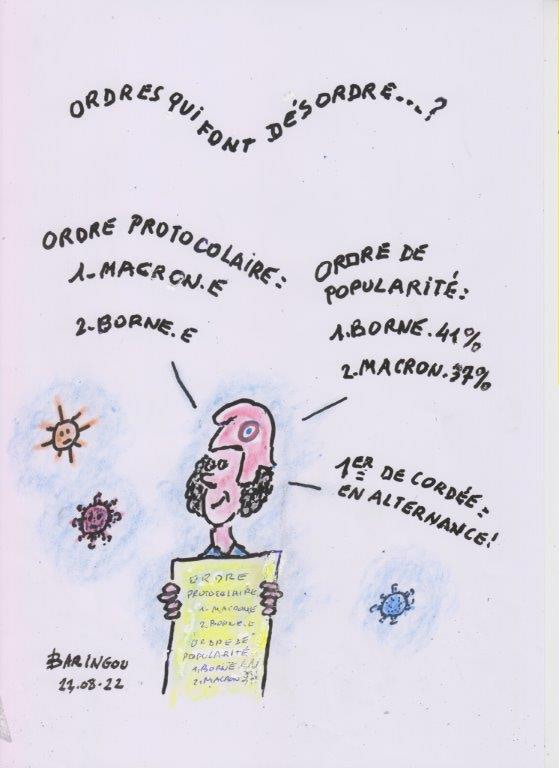 ORDRES QUI FONT DÉSORDRE....?
ORDRE PROTOCOLAIRE:
1-MACRON.E
2-BORNE.E
ORDRE DE
POPULARITÉ:
1.BORNE.41%
2.MACRON.37%
1ER DE CORDÉE:
EN ALTERNANCE!
ORDRE
PROTOCOLAIRE
1-MACRON.E
2.BORNE.E
ORDRE DE
POPULARITÉ
1.BORNE
2.MACRON
BARINGOU